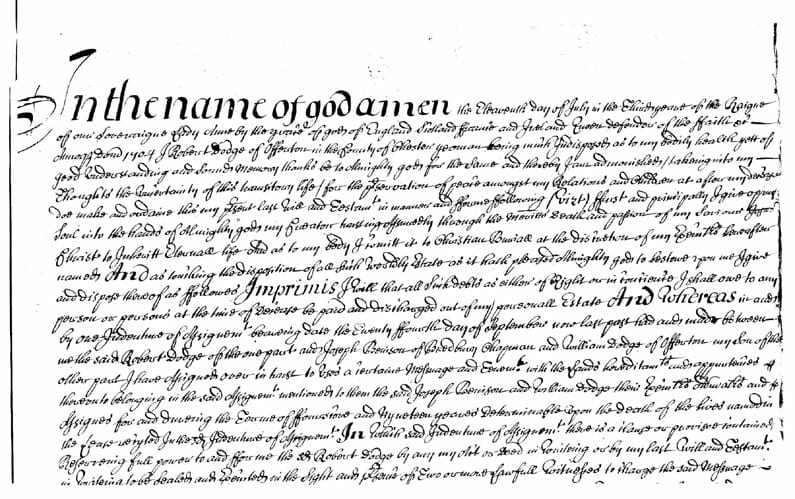 In the name of god amen the Eleaventh day of July in the Third yeare of the Raigne
of our Soveraigne Lady Anne by the grace of god of England Scotland ffrance and Ireland Queen defender of the ffaith &c
Annoq Dni 1704 I Robert Dodge of Offerton in the County of Chester yeoman being much Indisposed as to my bodily health yett of
good understanding and sound memory thanks be to Almighty god for the same and thereby I am admonished taking into my
Thoughts the Uncertainty of this transitory life for the prservation of peace amongst my Relations and Children at & after my decease
doe make and ordaine this my prsent last Will and Testamt in manner and fforme following (vizt) ffirst and principally I give up my
Soul into the hands of Almighty god my Creator haveing Assuredly through the merites death and passion of my Saviour Jesus
Christ to Inheritt Eternall life And as to my body I comitt it to Christian Buriall at the discretion of my Exectrs hereafter
named And as touching the disposition of all such Worldly Estate as it hath pleased Almighty god to bestow upon me I give
and dispose thereof as followes Imprimis I will that all such debts as either of Right or in conscience I shall owe to any
person or persons at the time of decease be paid and discharged out of my personall Estate And Whereas in and
by one Indenture of Assignemt beareing date the Twenty ffourth day of September now last past had and made between
me the said Robert Dodge of the one part and Joseph Benison of Bredbury Chapman and William Dodge of Offerton my Son of the
other part I have Assigned over in trust to Uses a certaine Messuage and Tenemt with the Lands hereditamts and appurtences
thereto belonging in the said Assignemt mentioned to them the said Joseph Benison and William Dodge their Exectrs Admrs and
Assignes for and dureing the Terme of ffourscore and Nyneteen yeares Determinable upon the death of the lives named in
the Lease recited In the sd Indenture of Assignemt In Which said Indenture of Assignemt there is a clause or proviso contained
Reserveing full power to and for me the sd Robert Dodge by any my Act or deed in writeing or by my last Will and Testamt
in writeing to be sealed and executed in the sight and prsence of Two or more Lawfull witnesses to Charge the said Messuage